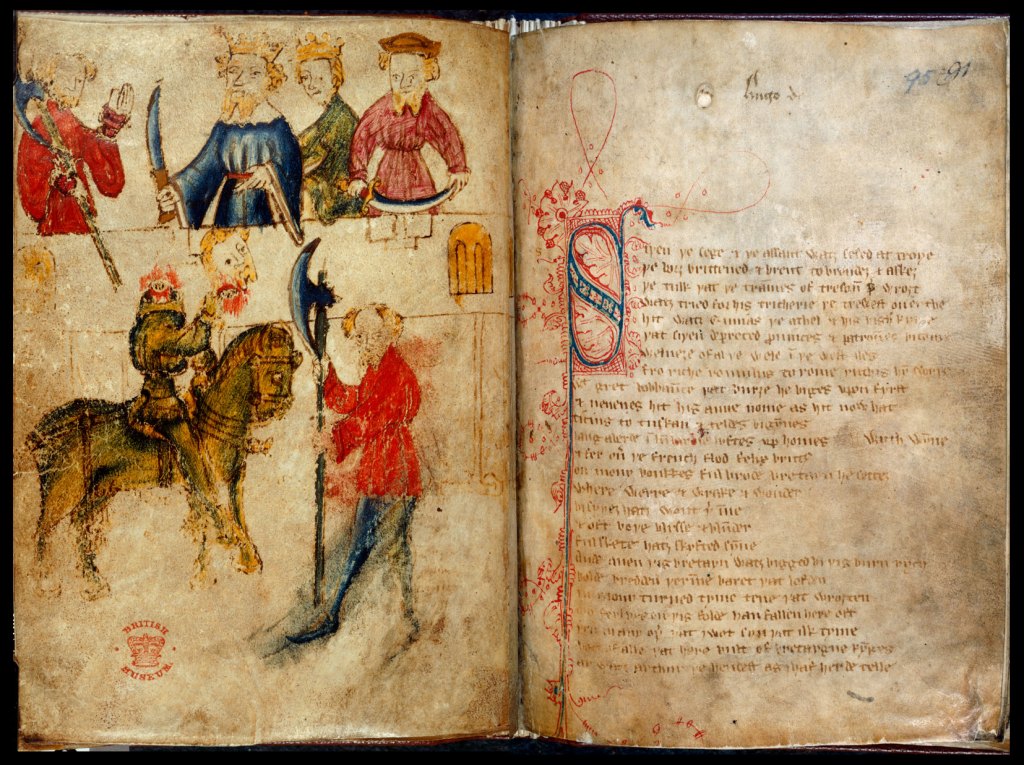 BRITISH
MUSEUM
Hugo de
95 91
Siþen þe sege & þe assaut watz sesed at troye
þe borȝ brittened & brent to brondeȝ & askez
þe tulk þat þe trammes of tresoū þ̄ wroȝt
watz tried for his tricherie þe trewest on erthe
hit watz Ennias þe athel & his highe kynde
þat siþen depreced prouinces & patrounes bicome
welneȝe of al þe wele ī þe west iles
fro riche romulus to rome ricchis hym swyþe
gret bobbaūce þat burȝe he biges vpon fyrst
& neuenes hit his aune nome as hit now hat
ticius to tuskan & teldes bigȳnes
langaberde ī lyftes vp homes wyth wȳne
& fer ou̇ þe french flod felix brutus
on mony bonkkes ful brode bretayn he settez
where werre & wrake & wonder
bi syþez hatz wont þ̄ īne
& oft boþe blysse & blūder
ful skete hatz skyfted sȳne
Ande quen þis bretayn watz bigged bi þis burn rych
bolde bredden þerīne baret þat lofden
in mony turned tyme tene þat wroȝten
mo ferlyes on þis folde han fallen here oft
þen in any oþ̄ þat I wot syn þat ilk tyme
bot of alle þat here bult of bretaygne kȳges
ay watz arthur þe hendest as I haf herde telle